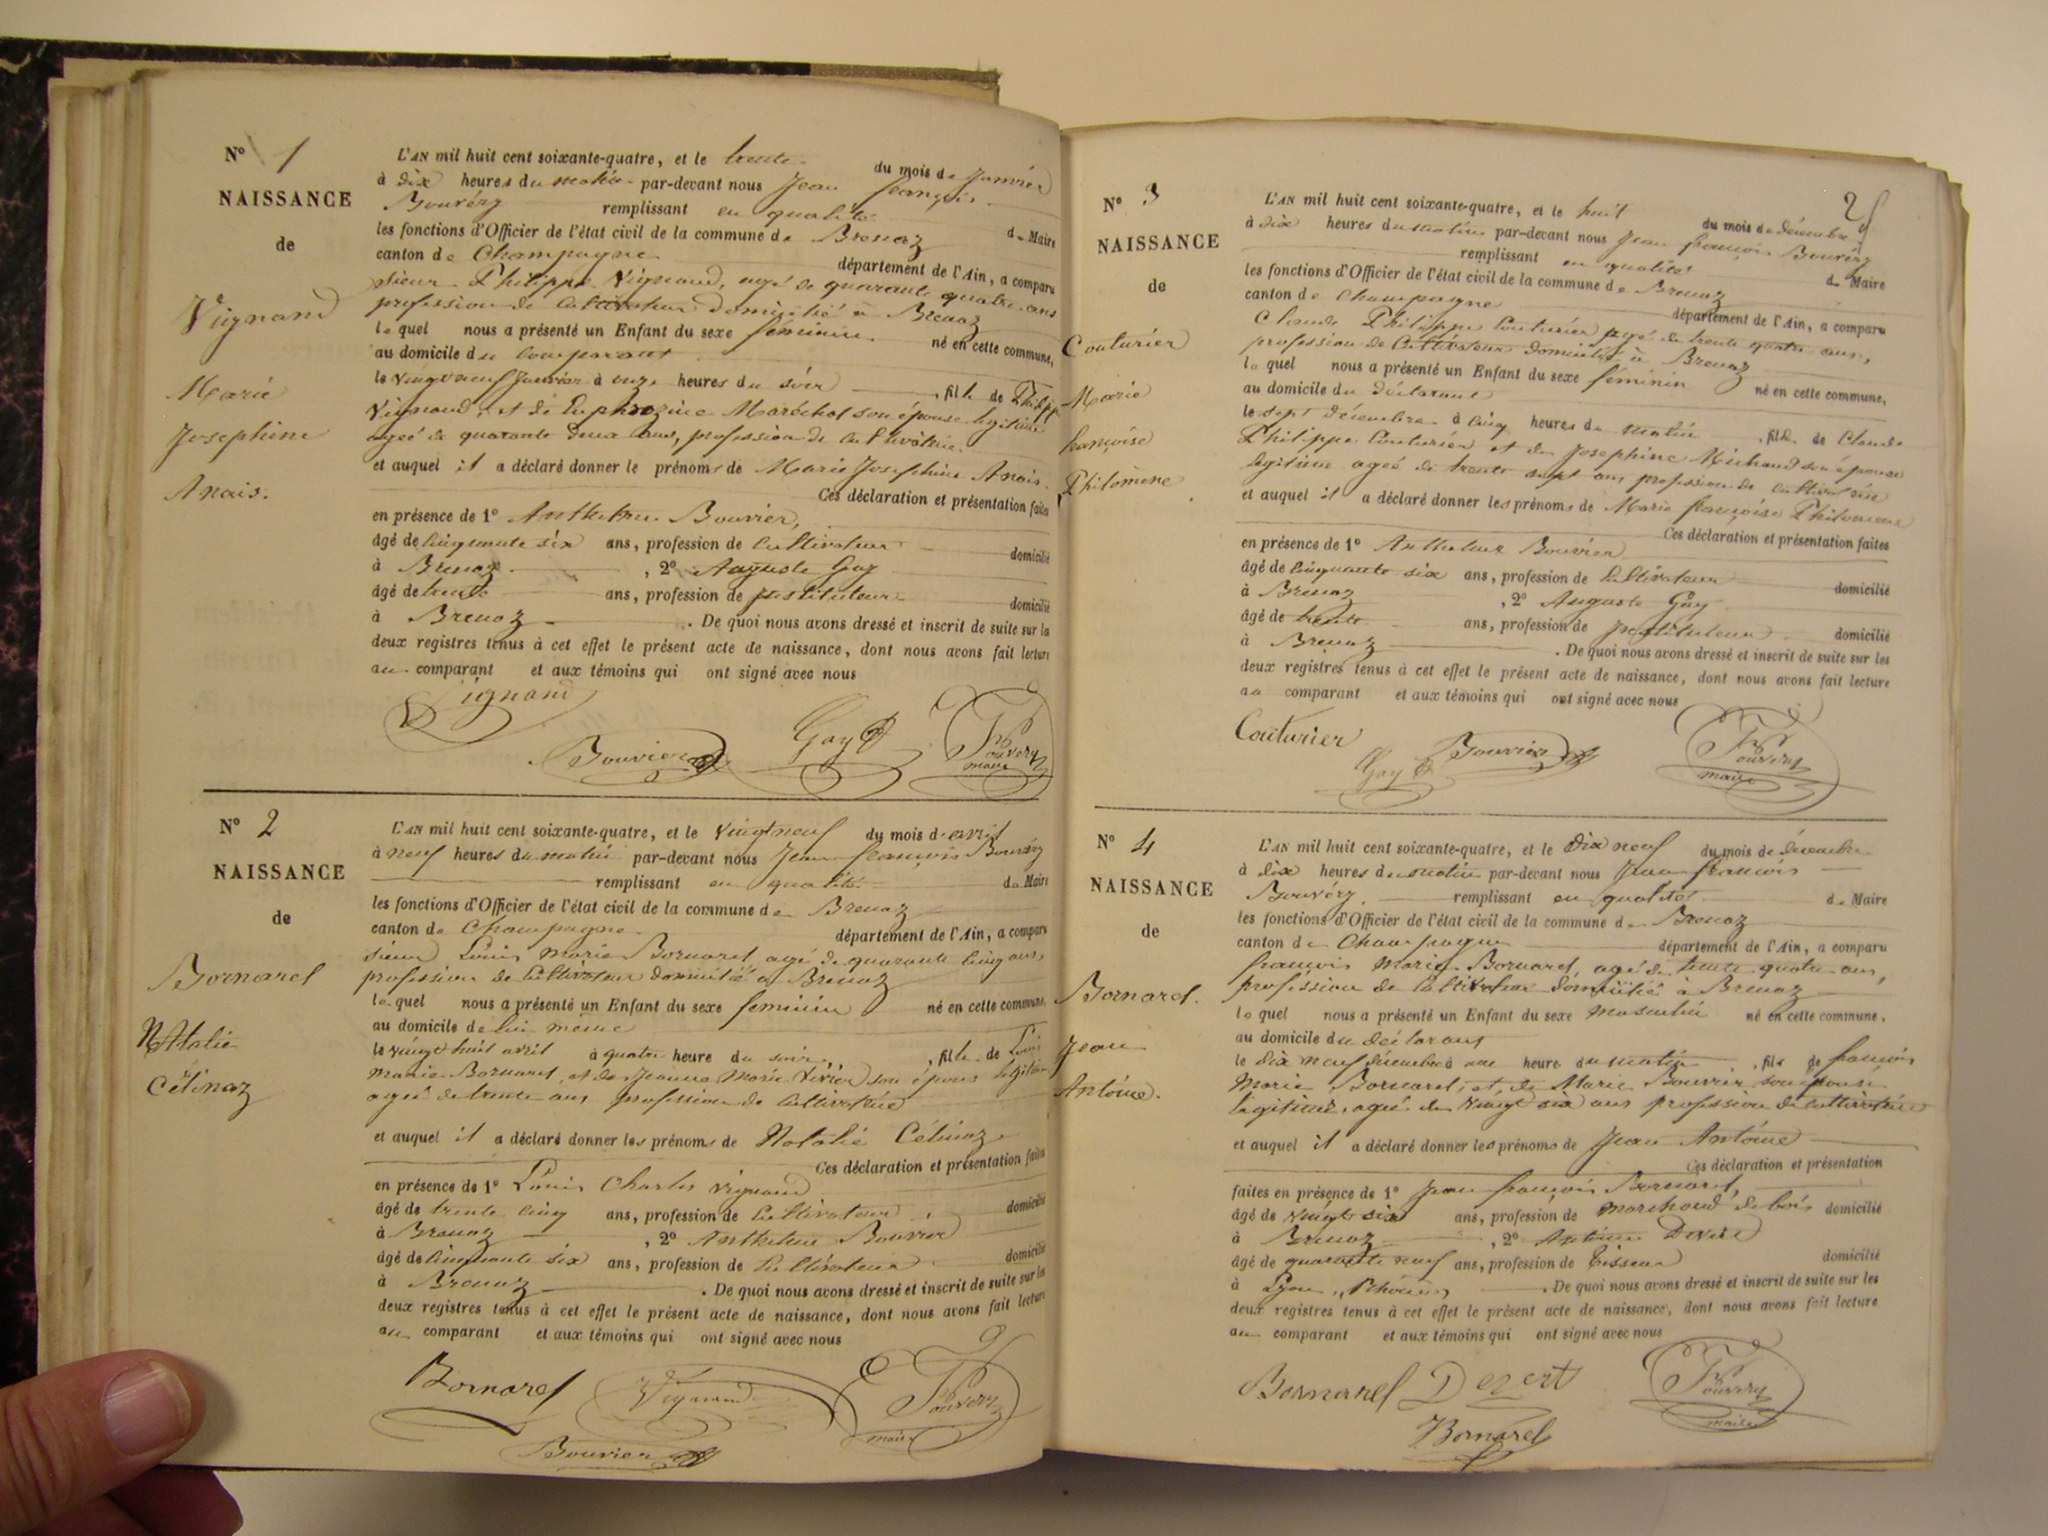 N° 1
NAISSANCE
de
Vignand
Marie
Josephine
Anais.
L'AN mil huit cent soixante-quatre, et le trente du mois de Janvier
à dix heures du matin par-devant nous Jean françois
Bouvéry remplissant en qualité de Maire
les fonctions d'Officier de l'état civil de la commune de Brenaz
canton de Champagne département de l'Ain, a comparu
sieur Philippe Vignand, agé de quarante quatre ans
profession de cultivateur domicilié à Brenaz
lequel nous a présenté un Enfant du sexe féminin né en cette commune,
au domicile du comparant
le vingt neuf Janvier à onze heures du soir, fille de Philippe
Vignand, et de Euphrozine Maréchal son épouse légitime
agée de quarante deux ans, profession de cultivatrice
et auquel il a déclaré donner le prénoms de Marie Josephine Anais.
Ces déclaration et présentation faites
en présence de 1° Anthelme Bouvier,
âgé de cinquante six ans, profession de cultivateur domicilié
à Brenaz, 2° Auguste Gay
âgé de trente ans, profession de instituteur domicilié
à Brenaz. De quoi nous avons dressé et inscrit de suite sur les
deux registres tenus à cet effet le présent acte de naissance, dont nous avons fait lecture
au comparant et aux témoins qui ont signé avec nous
Vignand
Bouvier Gay Bouvéry
maire
N° 2
NAISSANCE
de
Bornarel
Natalie
Célinaz
L'AN mil huit cent soixante-quatre, et le vingt neuf du mois d'avril
à neuf heures du matin par-devant nous Jean françois Bouvéry
remplissant en qualité de Maire
les fonctions d'Officier de l'état civil de la commune de Brenaz
canton de Champagne département de l'Ain, a comparu
sieur Louis Marie Bornarel, agé de quarante cinq ans,
profession de cultivateur domicilié à Brenaz
lequel nous a présenté un Enfant du sexe feminin né en cette commune,
au domicile de lui même
le vingt huit avril à quatre heure du soir, fille de Louis
Marie Bornarel, et de Jeanne Marie son épouse légitime
agée de trente ans profession de cultivatrice
et auquel il a déclaré donner les prénoms de Natalie Célinaz
Ces déclaration et présentation faites
en présence de 1° Louis Charles Vignand
âgé de trente cinq ans, profession de cultivateur, domicilié
à Brenaz, 2° Anthelme Bouvier
âgé de cinquante six ans, profession de cultivateur domicilié
à Brenaz. De quoi nous avons dressé et inscrit de suite sur les
deux registres tenus à cet effet le présent acte de naissance, dont nous avons fait lecture
au comparant et aux témoins qui ont signé avec nous
Bornarel Vignand Bouvéry
maire
Bouvier
2
N° 3
NAISSANCE
de
Couturier
Marie
françoise
Philomène
L'AN mil huit cent soixante-quatre, et le huit du mois de décembre
à dix heures du matin par-devant nous Jean françois Bouvéry
remplissant en qualité de Maire
les fonctions d'Officier de l'état civil de la commune de Brenaz
canton de Champagne département de l'Ain, a comparu
Claude Philippe Couturier agé de trente quatre ans,
profession de cultivateur domicilié à Brenaz
lequel nous a présenté un Enfant du sexe féminin né en cette commune,
au domicile du déclarant
le sept décembre à cinq heures du matin, fille de Claude
Philippe Couturier et de Josephine Michaud son épouse
légitime agée de trente sept ans profession de cultivatrice
et auquel il a déclaré donner les prénoms de Marie françoise Philomène
Ces déclaration et présentation faites
en présence de 1° Anthelme Bouvier
âgé de cinquante six ans, profession de cultivateur domicilié
à Brenaz, 2° Auguste Gay
âgé de trente ans, profession de instituteur domicilié
à Brenaz. De quoi nous avons dressé et inscrit de suite sur les
deux registres tenus à cet effet le présent acte de naissance, dont nous avons fait lecture
au comparant et aux témoins qui ont signé avec nous
Couturier
Gay Bouvier Bouvéry
maire
N° 4
NAISSANCE
de
Bornarel.
Jean
Antoine.
L'AN mil huit cent soixante-quatre, et le dix neuf du mois de décembre
à dix heures du matin par-devant nous Jean françois
Bouvéry. remplissant en qualité de Maire
les fonctions d'Officier de l'état civil de la commune de Brenaz
canton de Champagne département de l'Ain, a comparu
françois Marie Bornarel, agé de trente quatre ans,
profession de cultivateur domicilié à Brenaz
lequel nous a présenté un Enfant du sexe masculin né en cette commune,
au domicile du déclarant
le dix neuf décembre à une heure du matin, fils de françois
Marie Bornarel, et de Marie Bouvier son épouse
légitime, agée de vingt six ans profession de cultivatrice
et auquel il a déclaré donner les prénoms de Jean Antoine
Ces déclaration et présentation
faites en présence de 1° Jean françois Bornarel,
âgé de vingt six ans, profession de marchand de bois domicilié
à Brenaz, 2° Antoine
âgé de quarante neuf ans, profession de tisseur domicilié
à Lyon, Rhône. De quoi nous avons dressé et inscrit de suite sur les
deux registres tenus à cet effet le présent acte de naissance, dont nous avons fait lecture
au comparant et aux témoins qui ont signé avec nous
Bornarel Dezert Bouvéry
maire
Bornarel